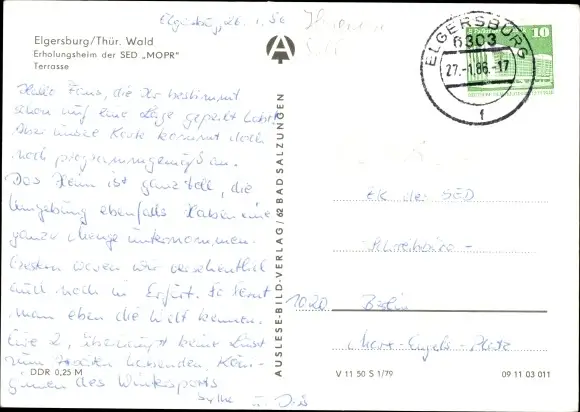 Elgersburg, 26. 1. 86
Elgersburg/Thür. Wald
Erholungsheim der SED „MOPR"
Terrasse
Hallo Fans, die Ihr bestimmt
schon auf eine Lage gepeilt habt.
Aber unsere Karte kommt doch
noch programmgemäß an.
Das Heim ist ganz toll, die
Umgebung ebenfalls. Haben eine
ganze Menge unternommen.
Gestern waren wir versehentlich
auch noch in Erfurt. So lernt
man eben die Welt kennen.
Eure 2, überhaupt keine Lust
zum Arbeiten habenden, Köni-
ginnen des Wintersports
DDR 0,25 M
AUSLESE-BILD-VERLAG, 62 BAD SALZUNGEN
ELGERSBURG
6303
27.-1.86.-17
f
10
ZK der SED
Schreibbüro -
1020 Berlin
Marx-Engels-Platz
V 11 50 S 1/79
09 11 03 011